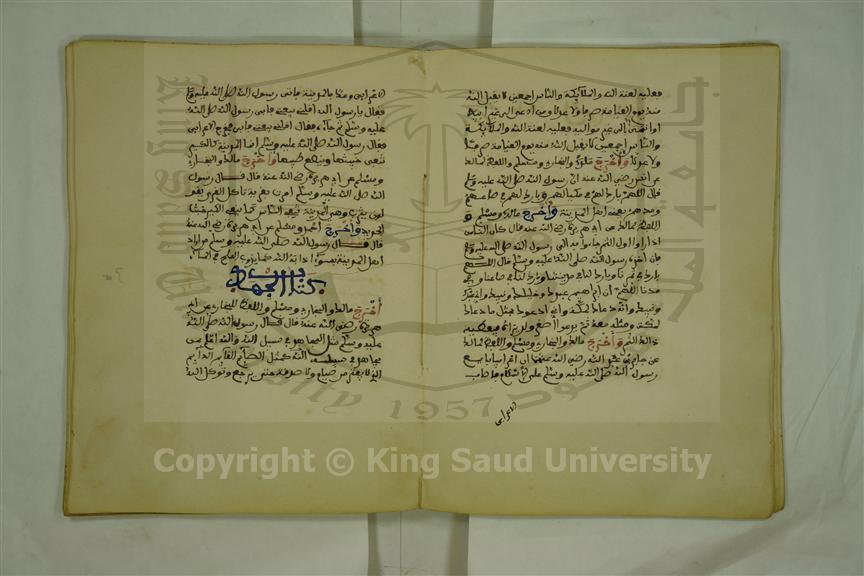 فعليه لعنة الله والملائكة والناس اجمعين لا يقبل الله
منه يوم القيامة صرفا ولا عدلا ومن ادعى الى غير ابيه
او انتمى الى غير مواليه فعليه لعنة الله والملائكة
والناس اجمعين لا يقبل الله منه يوم القيامة صرفا
ولا عدلا وأخرج مالك والبخاري ومسلم واللفظ لمالك
عن انس رضي الله عنه ان رسول الله صلى الله عليه وسلم
قال اللهم بارك لهم في مكيالهم وبارك لهم في صاعهم
ومدهم يعني اهل المدينة وأخرج مالك ومسلم و
اللفظ لمالك عن ابي هريرة رضي الله عنه قال كان الناس
اذا راوا اول الثمر جاءوا به الى رسول الله صلى الله عليه وسلم
فاذا اخذه رسول الله صلى الله عليه وسلم قال اللهم
بارك لنا في ثمرنا وبارك لنا في مدينتنا وبارك لنا في صاعنا وفي
مدنا اللهم ان ابراهيم عبدك وخليلك ونبيك واني عبدك
ونبيك وانه دعاك لمكة واني ادعوك بمثل ما دعاك
لمكة ومثله معه ثم يدعو اصغر وليد يراه فيعطيه
ذلك الثمر وأخرج مالك والبخاري ومسلم واللفظ لمالك
عن جابر بن عبد الله رضي الله عنهما ان اعرابيا بايع
رسول الله صلى الله عليه وسلم على الاسلام فاصاب
الاعرابي
الاعرابي وعك بالمدينة فاتى رسول الله صلى الله عليه وسلم
فقال يا رسول الله اقلني بيعتي فابى رسول الله صلى الله
عليه وسلم ثم جاءه فقال اقلني بيعتي فابى فخرج الاعرابي
فقال رسول الله صلى الله عليه وسلم انما المدينة كالكير
تنفي خبثها وينصع طيبها وأخرج مالك والبخاري
ومسلم عن ابي هريرة رضي الله عنه قال قال رسول
الله صلى الله عليه وسلم امرت بقرية تاكل القرى يقو
لون يثرب وهي المدينة تنفي الناس كما ينفي الكير خبث
الحديد وأخرج احمد ومسلم عن ابي هريرة رضي الله عنه
قال قال رسول الله صلى الله عليه وسلم من اراد
اهل المدينة بسوء اذابه الله كما يذوب الملح في الماء
كتاب الجهاد
أخرج مالك والبخاري ومسلم واللفظ للبخاري عن ابي
هريرة رضي الله عنه قال قال رسول الله صلى الله
عليه وسلم مثل المجاهد في سبيل الله والله اعلم بمن
يجاهد في سبيله كمثل الصائم القائم الدائم
الذي لا يفتر من صيام ولا صلاة حتى يرجع وتوكل الله
Copyright © King Saud University
جامعة الملك سعود
King Saud University
1957